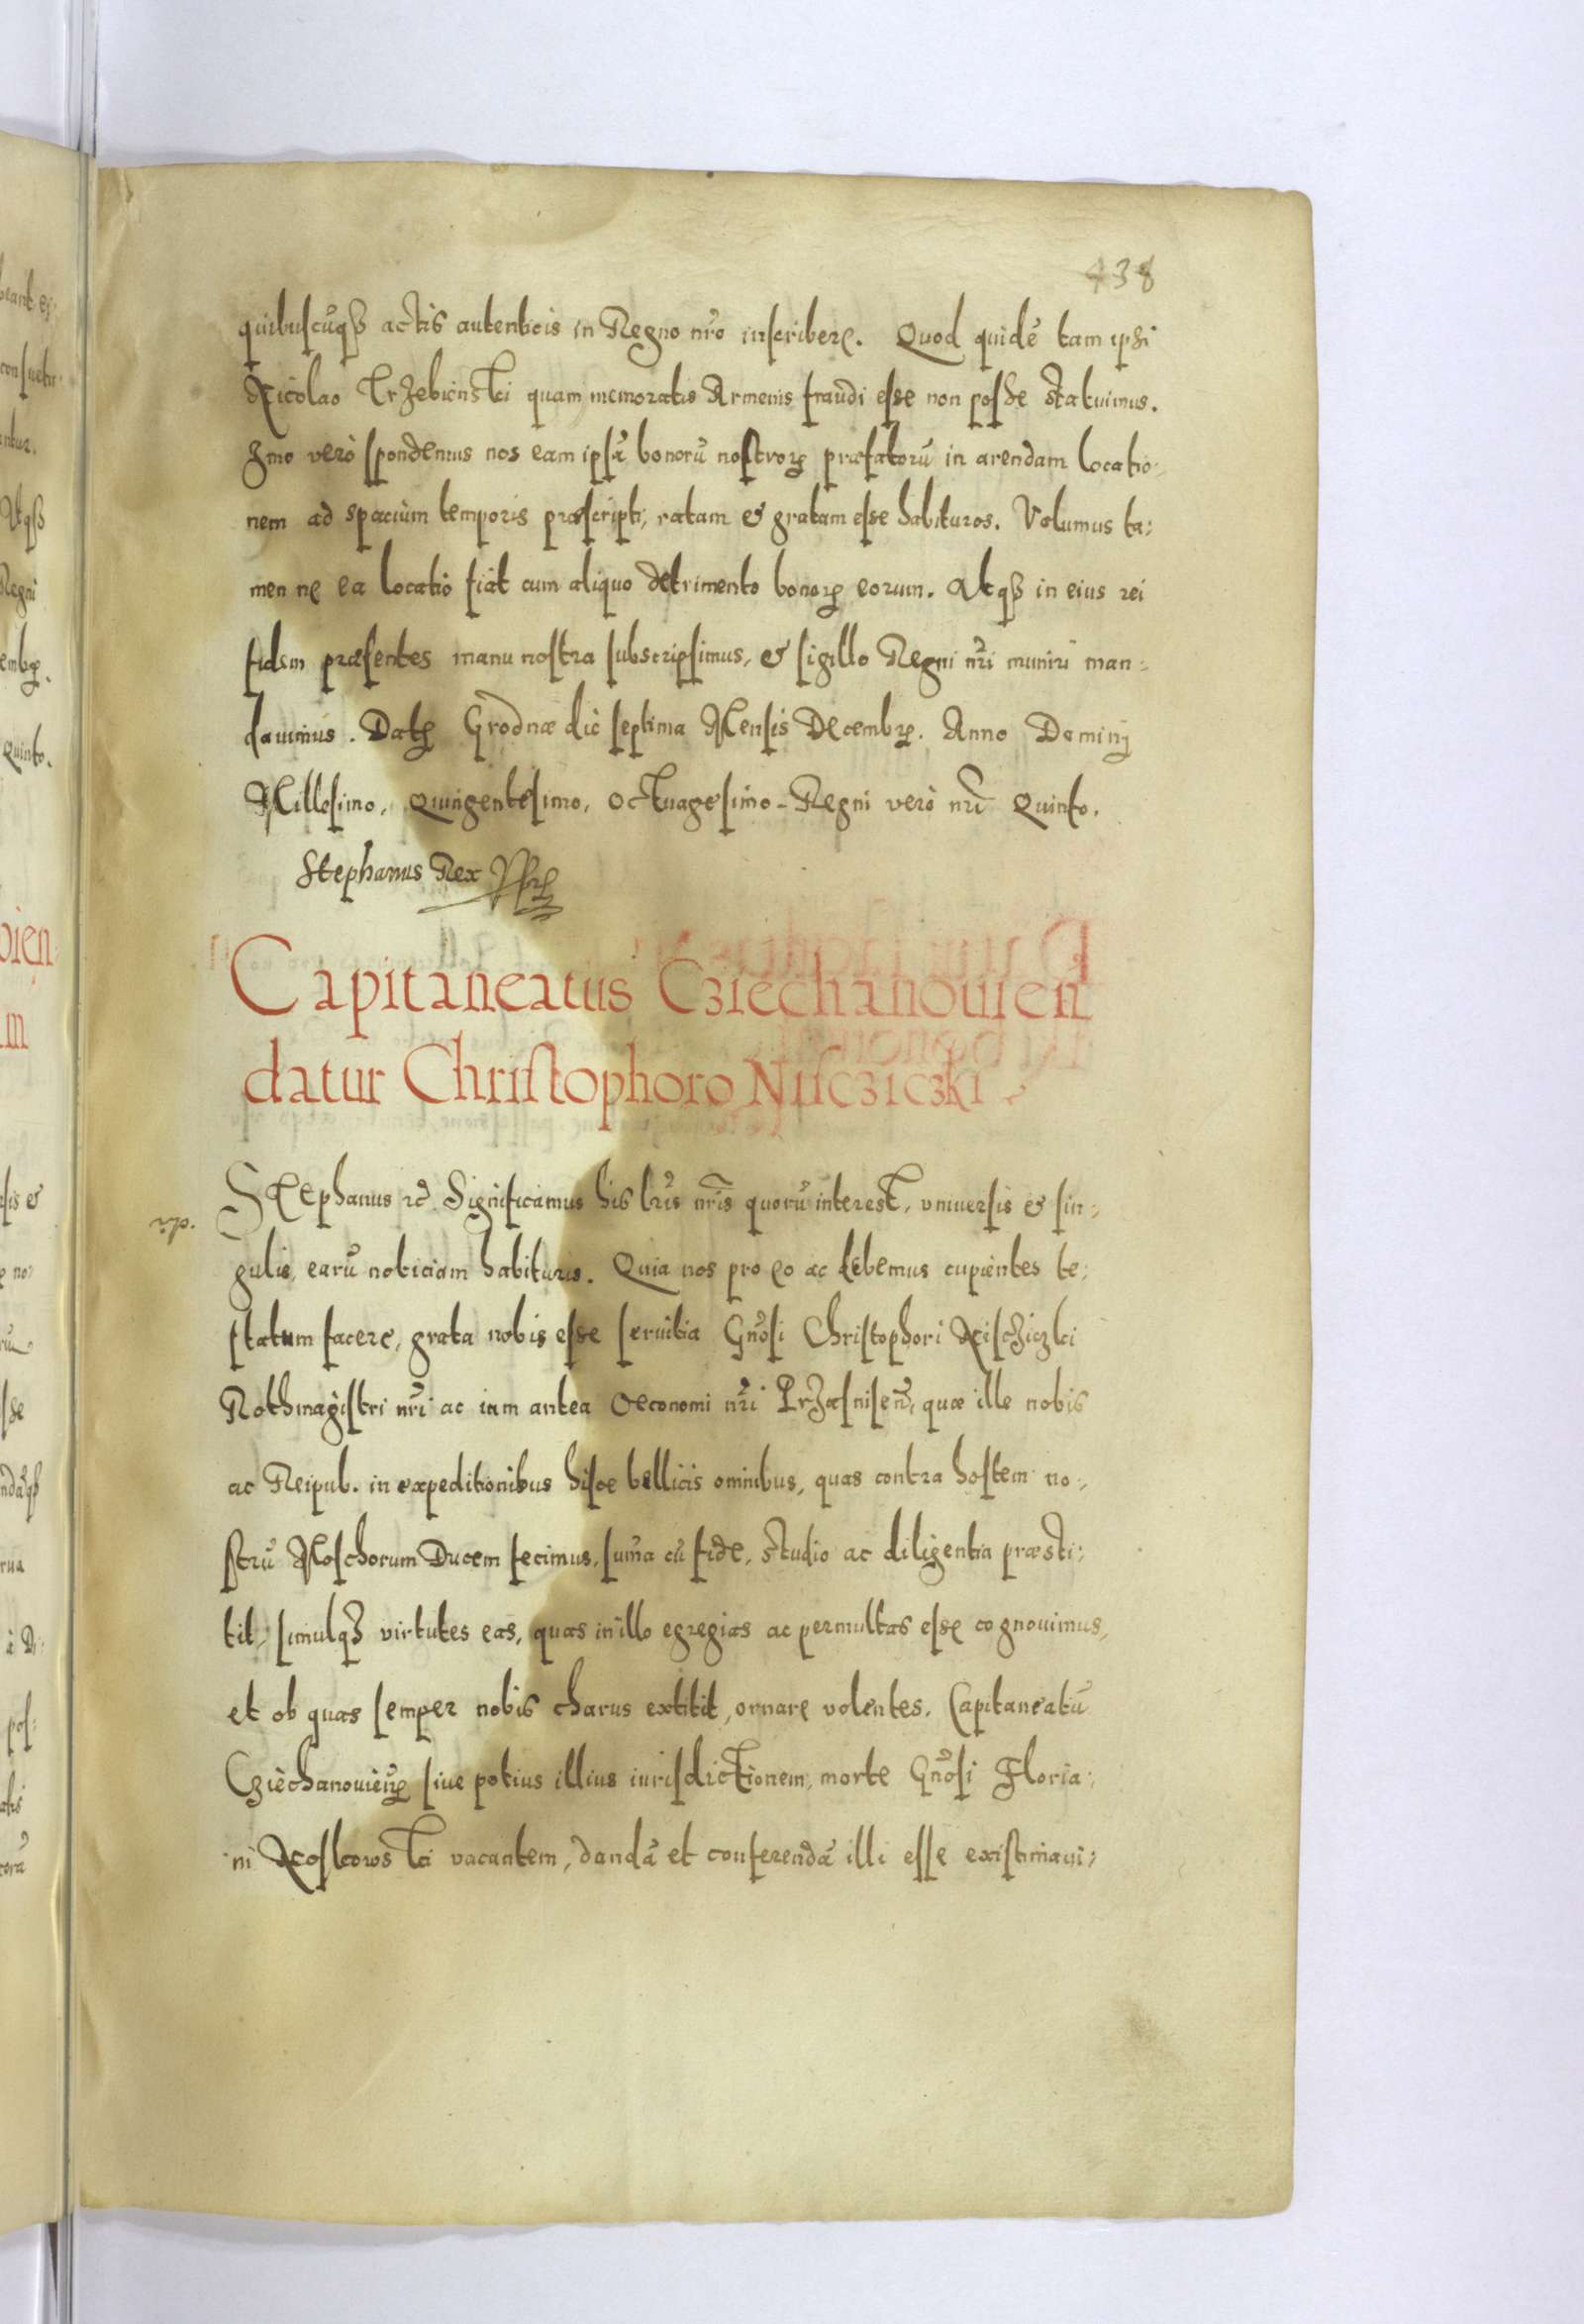 438
quibuscūqß actis autenticis in Regno nr̄o inscribere. Quod quidē tam ipsi
Nicolao Trzebienski quam memoratis Armenis fraudi esse non posse statuimus.
Imo verò spondemus nos eam ipsā bonorū nostrorꝝ præfatorū in arendam locatio-
nem ad spacium temporis præscripti, ratam & gratam esse habituros. Volumus ta-
men ne ea locatio fiat cum aliquo detrimento bonorꝝ eorum. Atqß in eius rei
fidem præsentes manu nostra subscripsimus, & sigillo Regni nr̄i muniri man-
dauimus. Datꝝ Grodnæ die septima Mensis Decembꝝ. Anno Dominj
Millesimo, Quingentesimo, Octuagesimo. Regni verò nr̄i Quinto.
Stephanus Rex
Capitaneatus Cziechanouien
datur Christophoro Niscziczki
Stephanus rc̄ Significamus his lr̄is nr̄is quorū interest, vniuersis & sin-
gulis, earū noticiam habituris. Quia nos pro eo ac debemus cupientes te-
statum facere, grata nobis esse seruitia Gnōsi Christophori Nischiczki
Rothmagistri nr̄i ac iam antea Oeconomi nr̄i Przasnisen̄, quæ ille nobis
ac Reipub. in expeditionibus hisce bellicis omnibus, quas contra hostem no-
strū Moschorum Ducem fecimus, sum̄a cū fide, studio ac diligentia præsti-
tit, simulqß virtutes eas, quas in illo egregias ac permultas esse cognouimus,
et ob quas semper nobis charus extitit, ornare volentes. Capitaneatū
Cziechanouien̄ꝝ siue potius illius iurisdictionem, morte Gnōsi Floria-
ni Noskowski vacantem, dandā et conferendā illi esse existimaui-